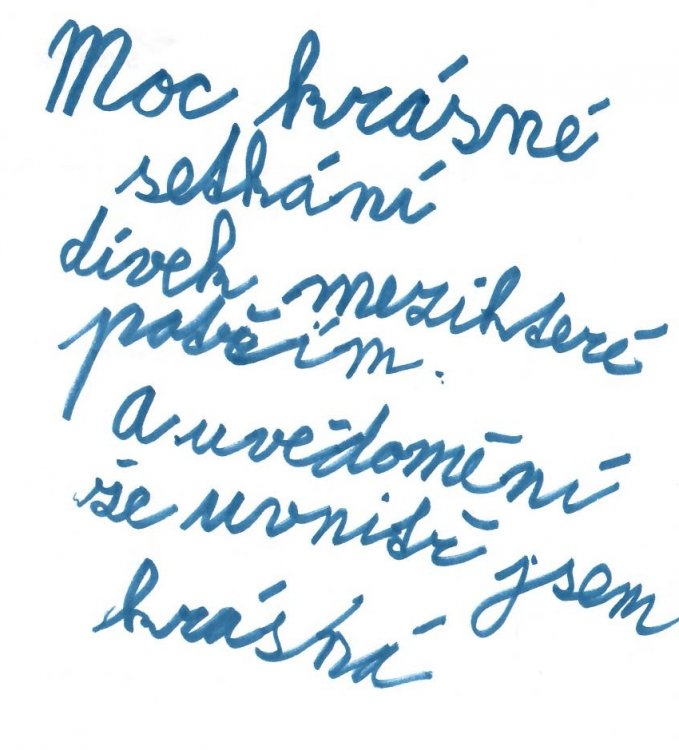 Moc krásné
setkání
dívek mezikteré
patřím.
a uvědomění
že uvnitř jsem
krásná